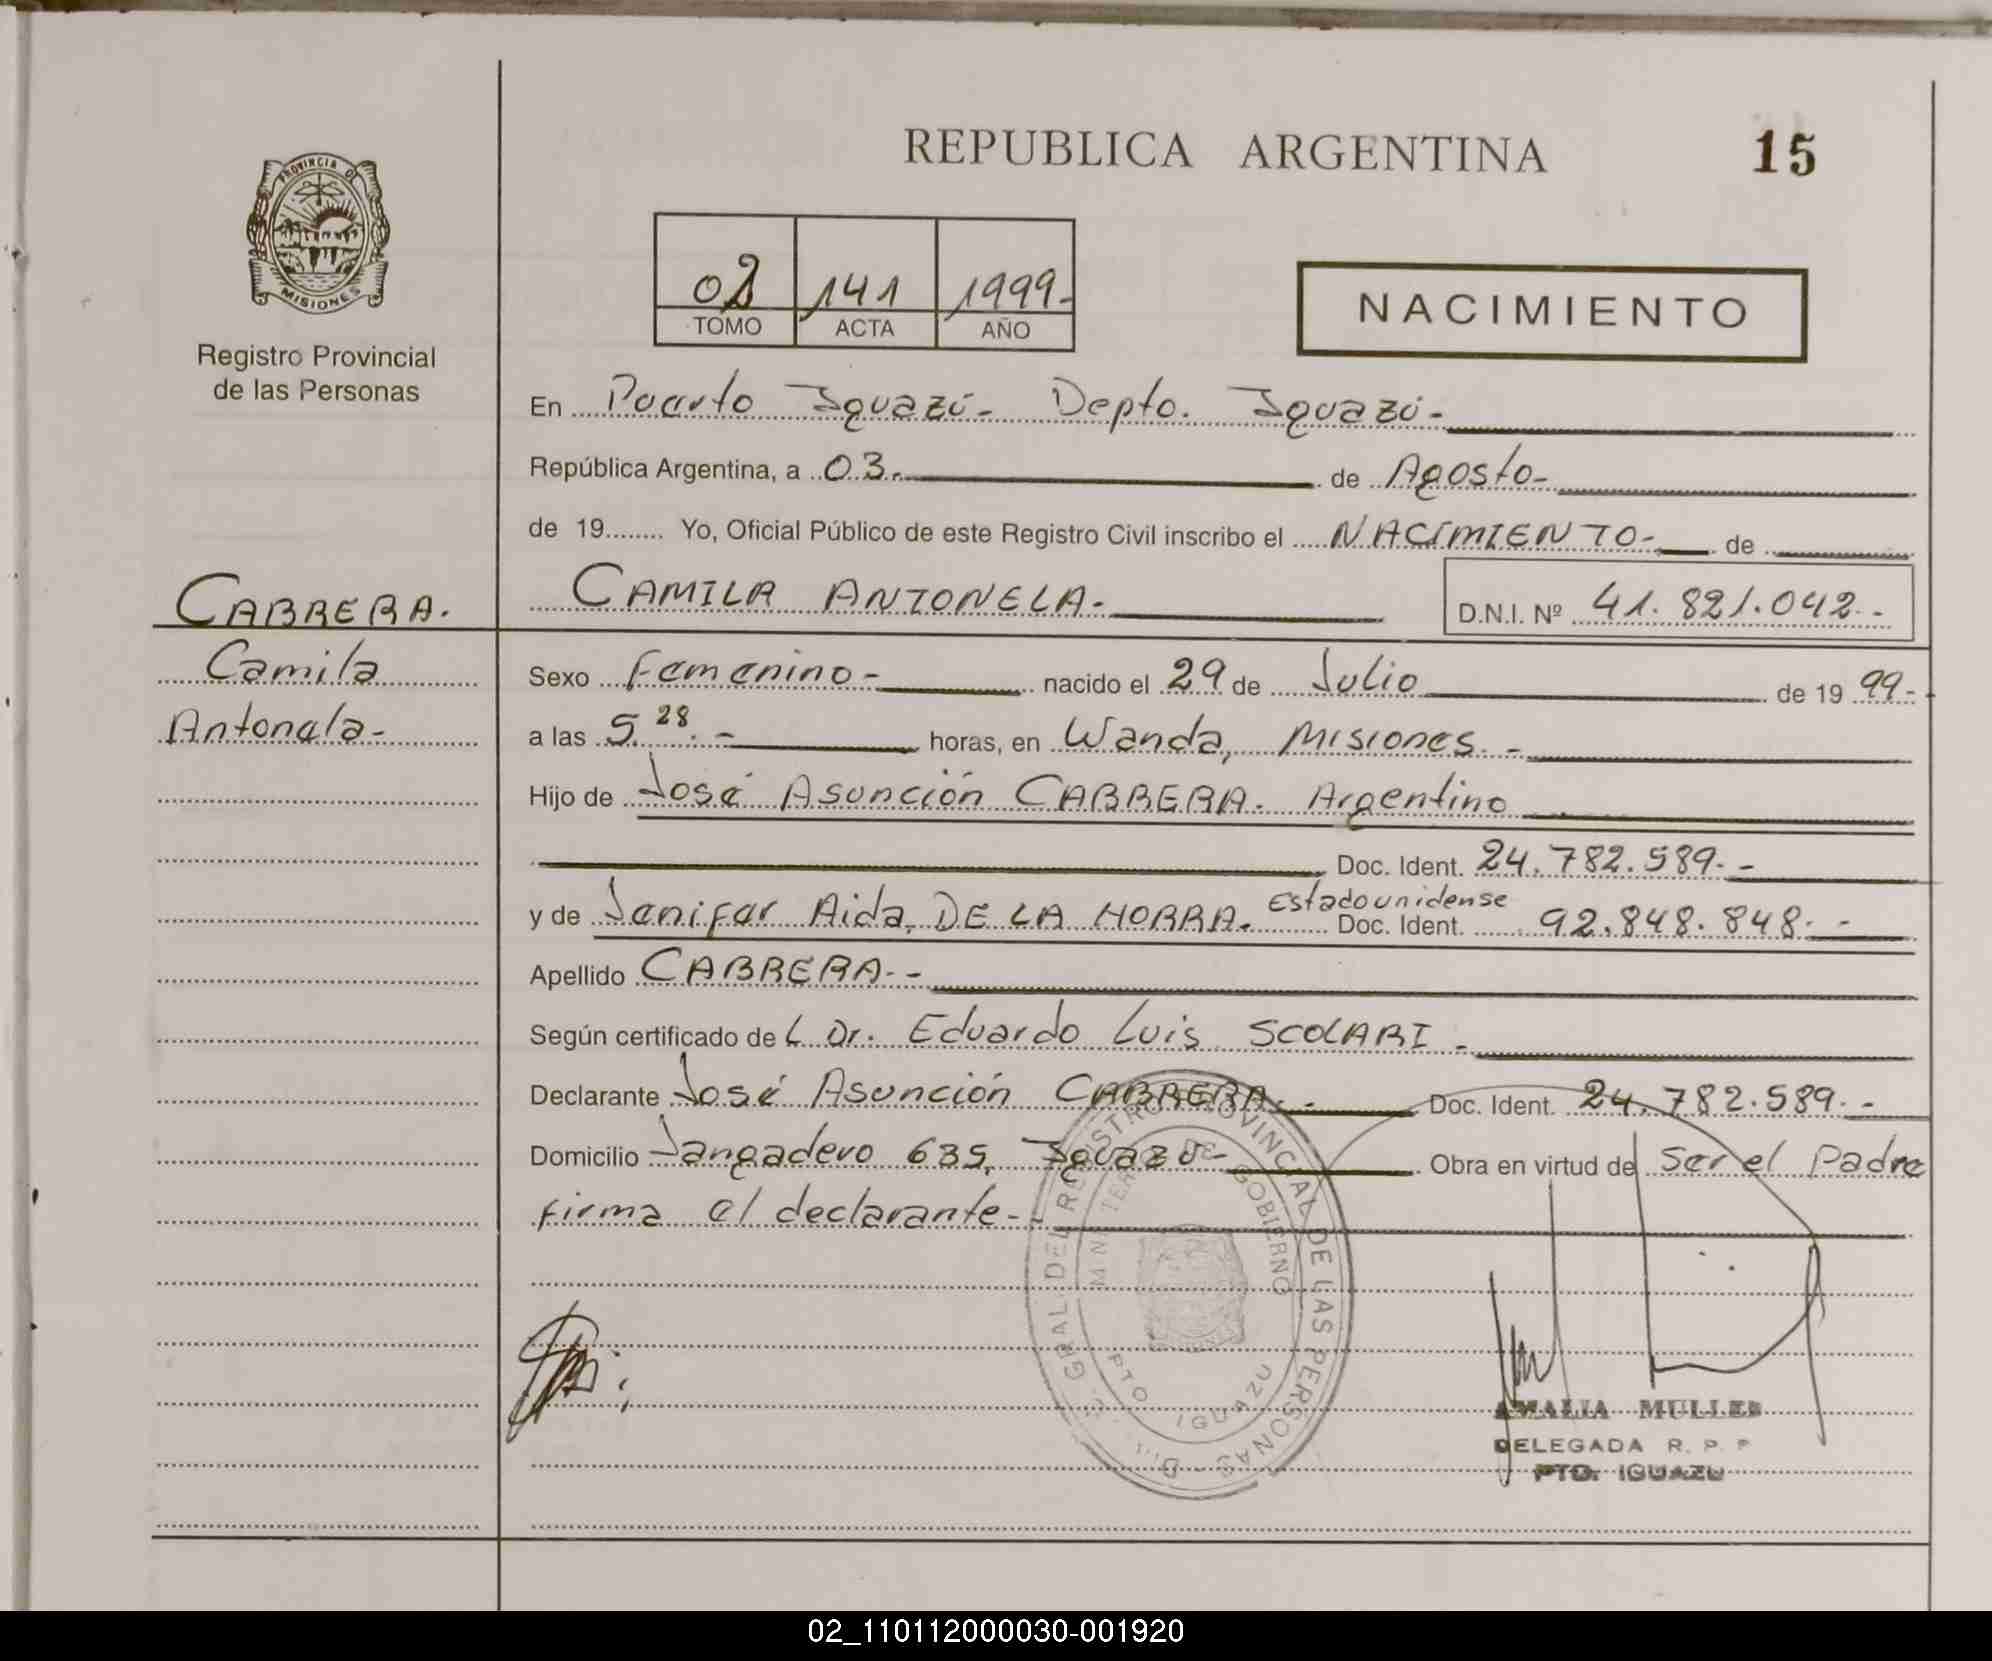 REPUBLICA ARGENTINA
15
PROVINCIA DE
MISIONES
Registro Provincial
de las Personas
02 141 1999.-
TOMO ACTA AÑO
NACIMIENTO
En Puerto Iguazú- Depto. Iguazú-
República Argentina, a 03.- de Agosto-
de 19........ Yo, Oficial Público de este Registro Civil inscribo el NACIMIENTO- de
CABRERA.
CAMILA ANTONELA- D.N.I. Nº 41.821.042.-
Camila
Antonela-
Sexo Femenino- nacido el 29 de Julio de 19 99.-
a las 5.28.- horas, en Wanda, Misiones.-
Hijo de José Asunción CABRERA. Argentino
Doc. Ident. 24.782.589.-
y de Jenifer Aida, DE LA HORRA. Estadounidense Doc. Ident. 92.848.848.-
Apellido CABRERA.-
Según certificado de L Dr. Eduardo Luis SCOLARI-
Declarante José Asunción CABRERA.- Doc. Ident. 24.782.589.-
Domicilio Jangadero 635, Iguazú- Obra en virtud de Ser el Padre
firma el declarante.-
GRAL DEL REGISTRO PROVINCIAL DE LAS PERSONAS
MINISTERIO DE GOBIERNO
PTO IGUAZU
AMALIA MULLER
DELEGADA R. P. P
PTO. IGUAZU
02_110112000030-001920